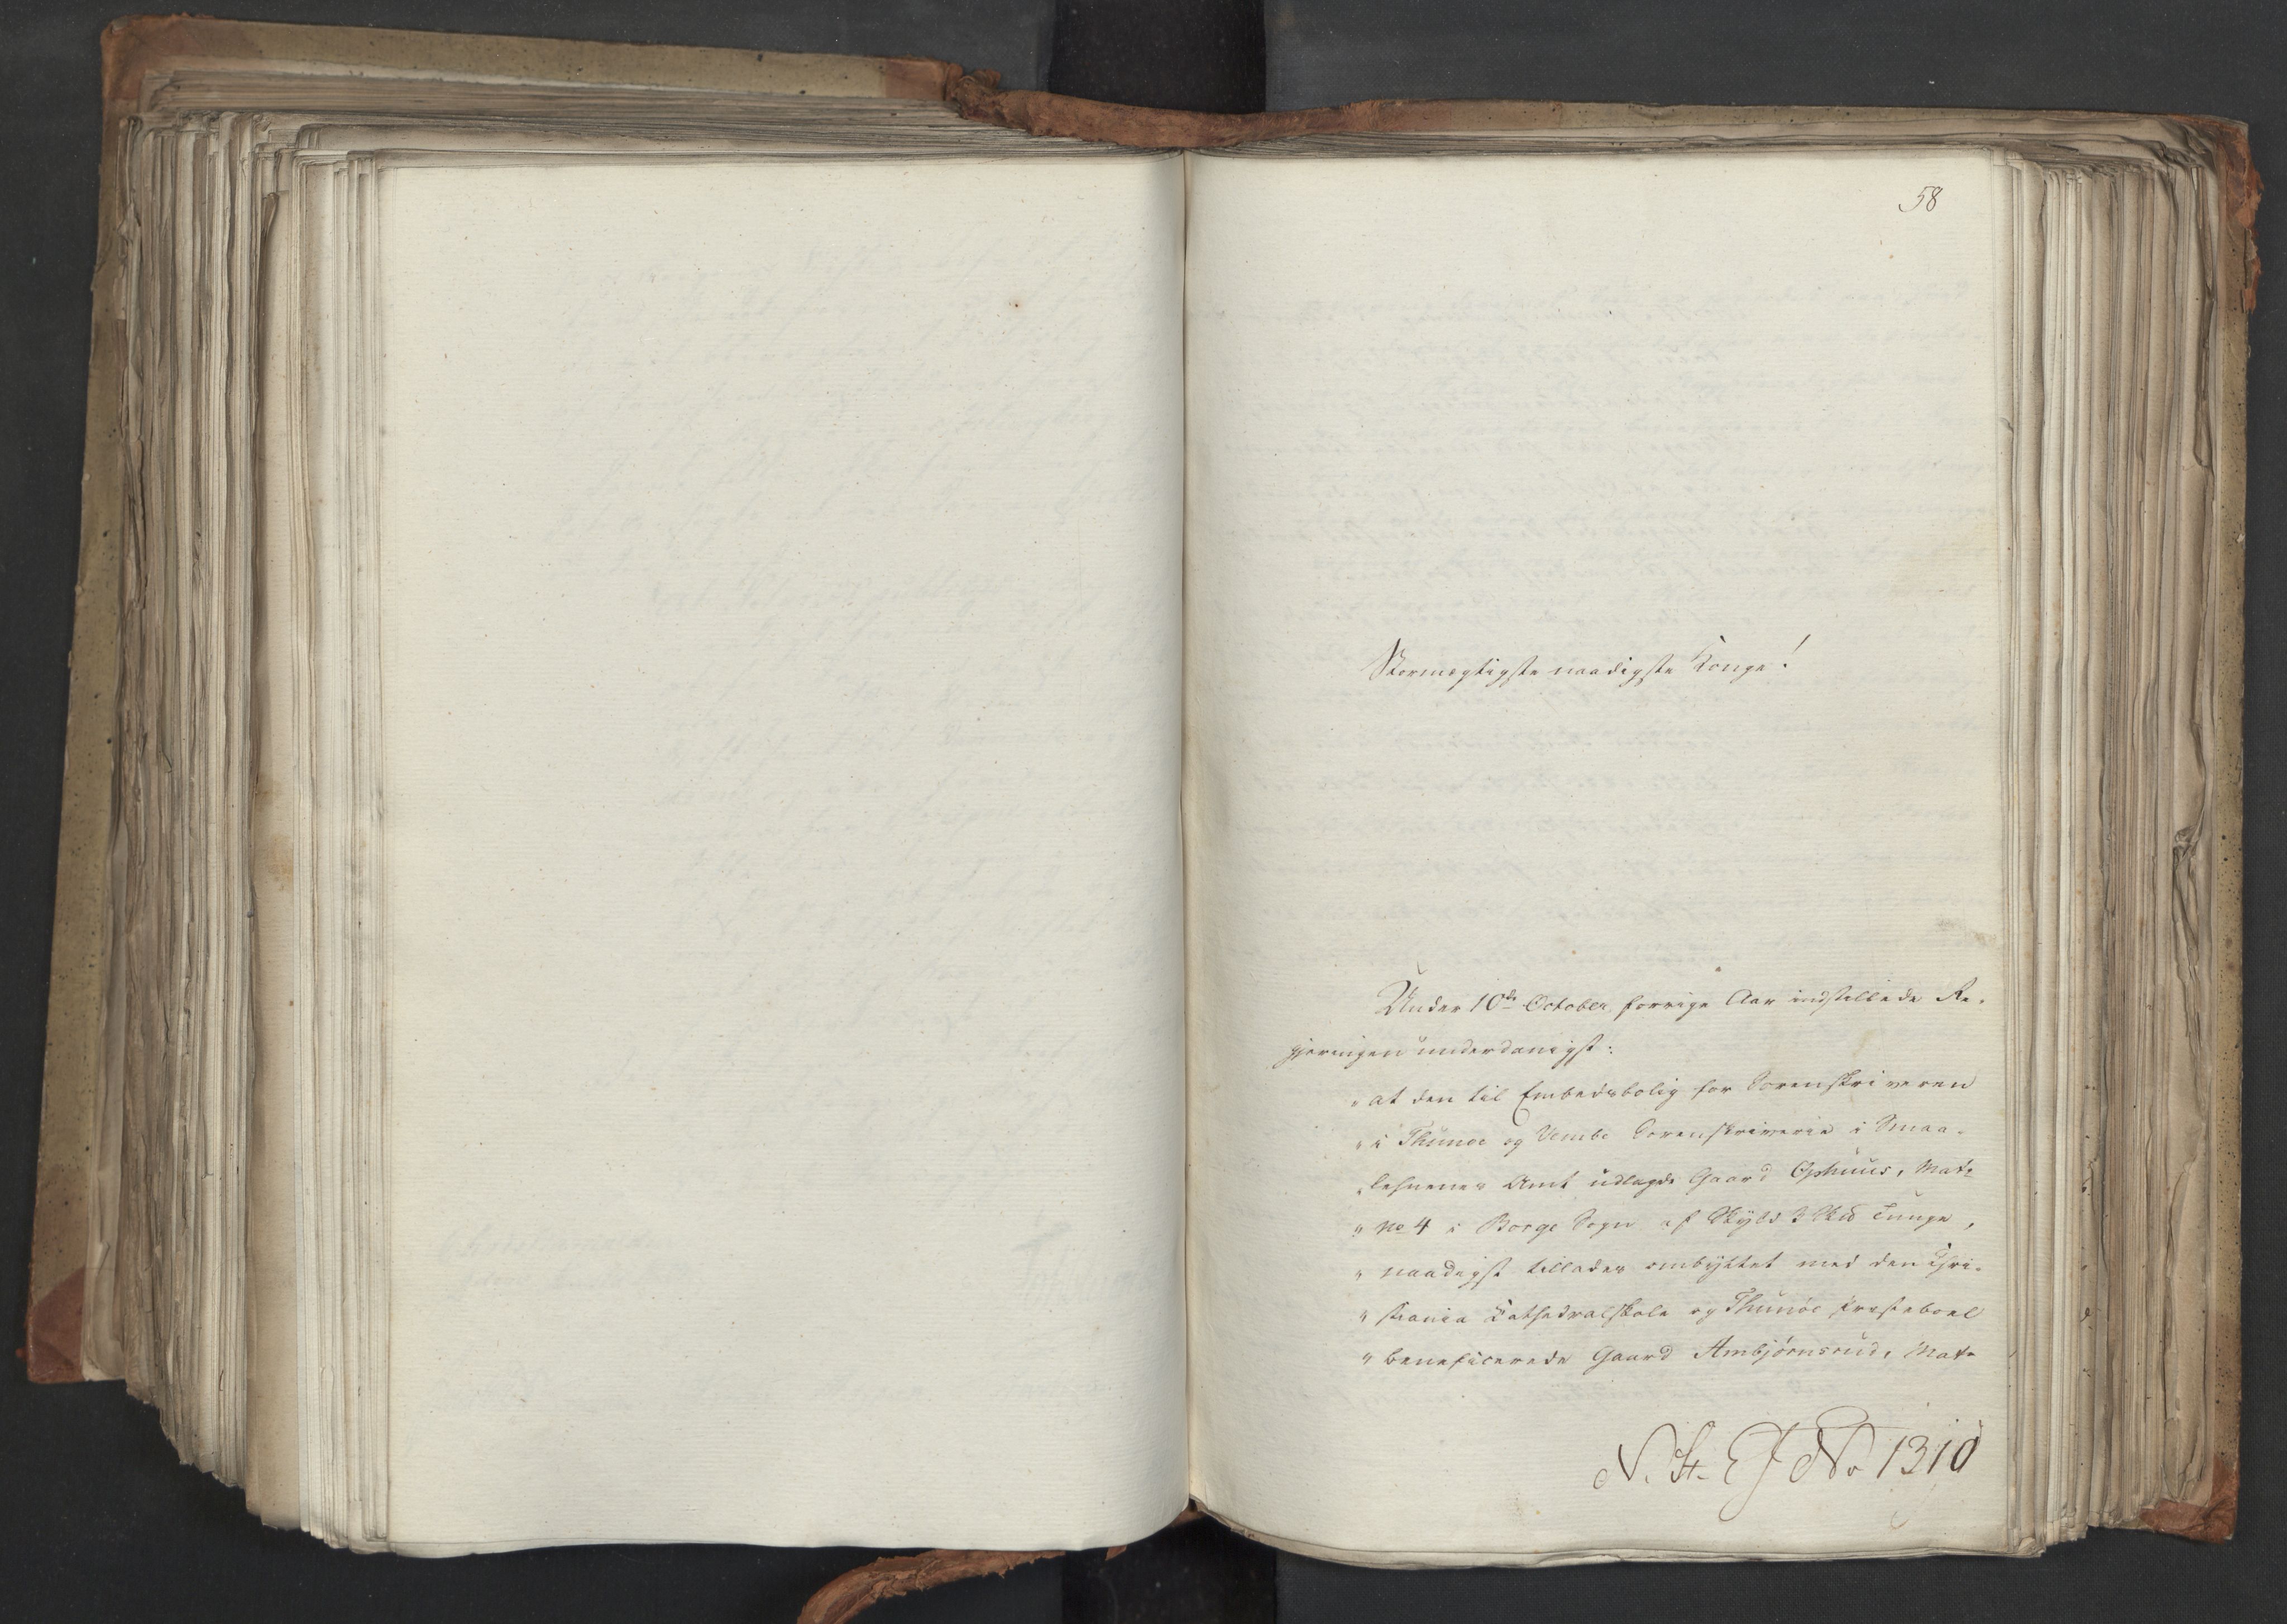 58
Stormægtigste naadigste Konge!
Under 10de October forrige Aar indstillede Re-
gjeringen underdanigst:
"at den til Embedsbolig for Sorenskriveren
"i Thunøe og Vembe Sorenskriverie i Smaa-
"lehnenes Amt udlagde Gaard Ophuus, Matr
"No 4 i Borge Sogn af Skyld 3 Skd Tunge,
"naadigst tillades ombyttet med den Chri-
"stiania Kathedralskole og Thunøe Præsteboel
"beneficerede Gaard Ambjørnsrud, Matr
N. St. E J No 1310